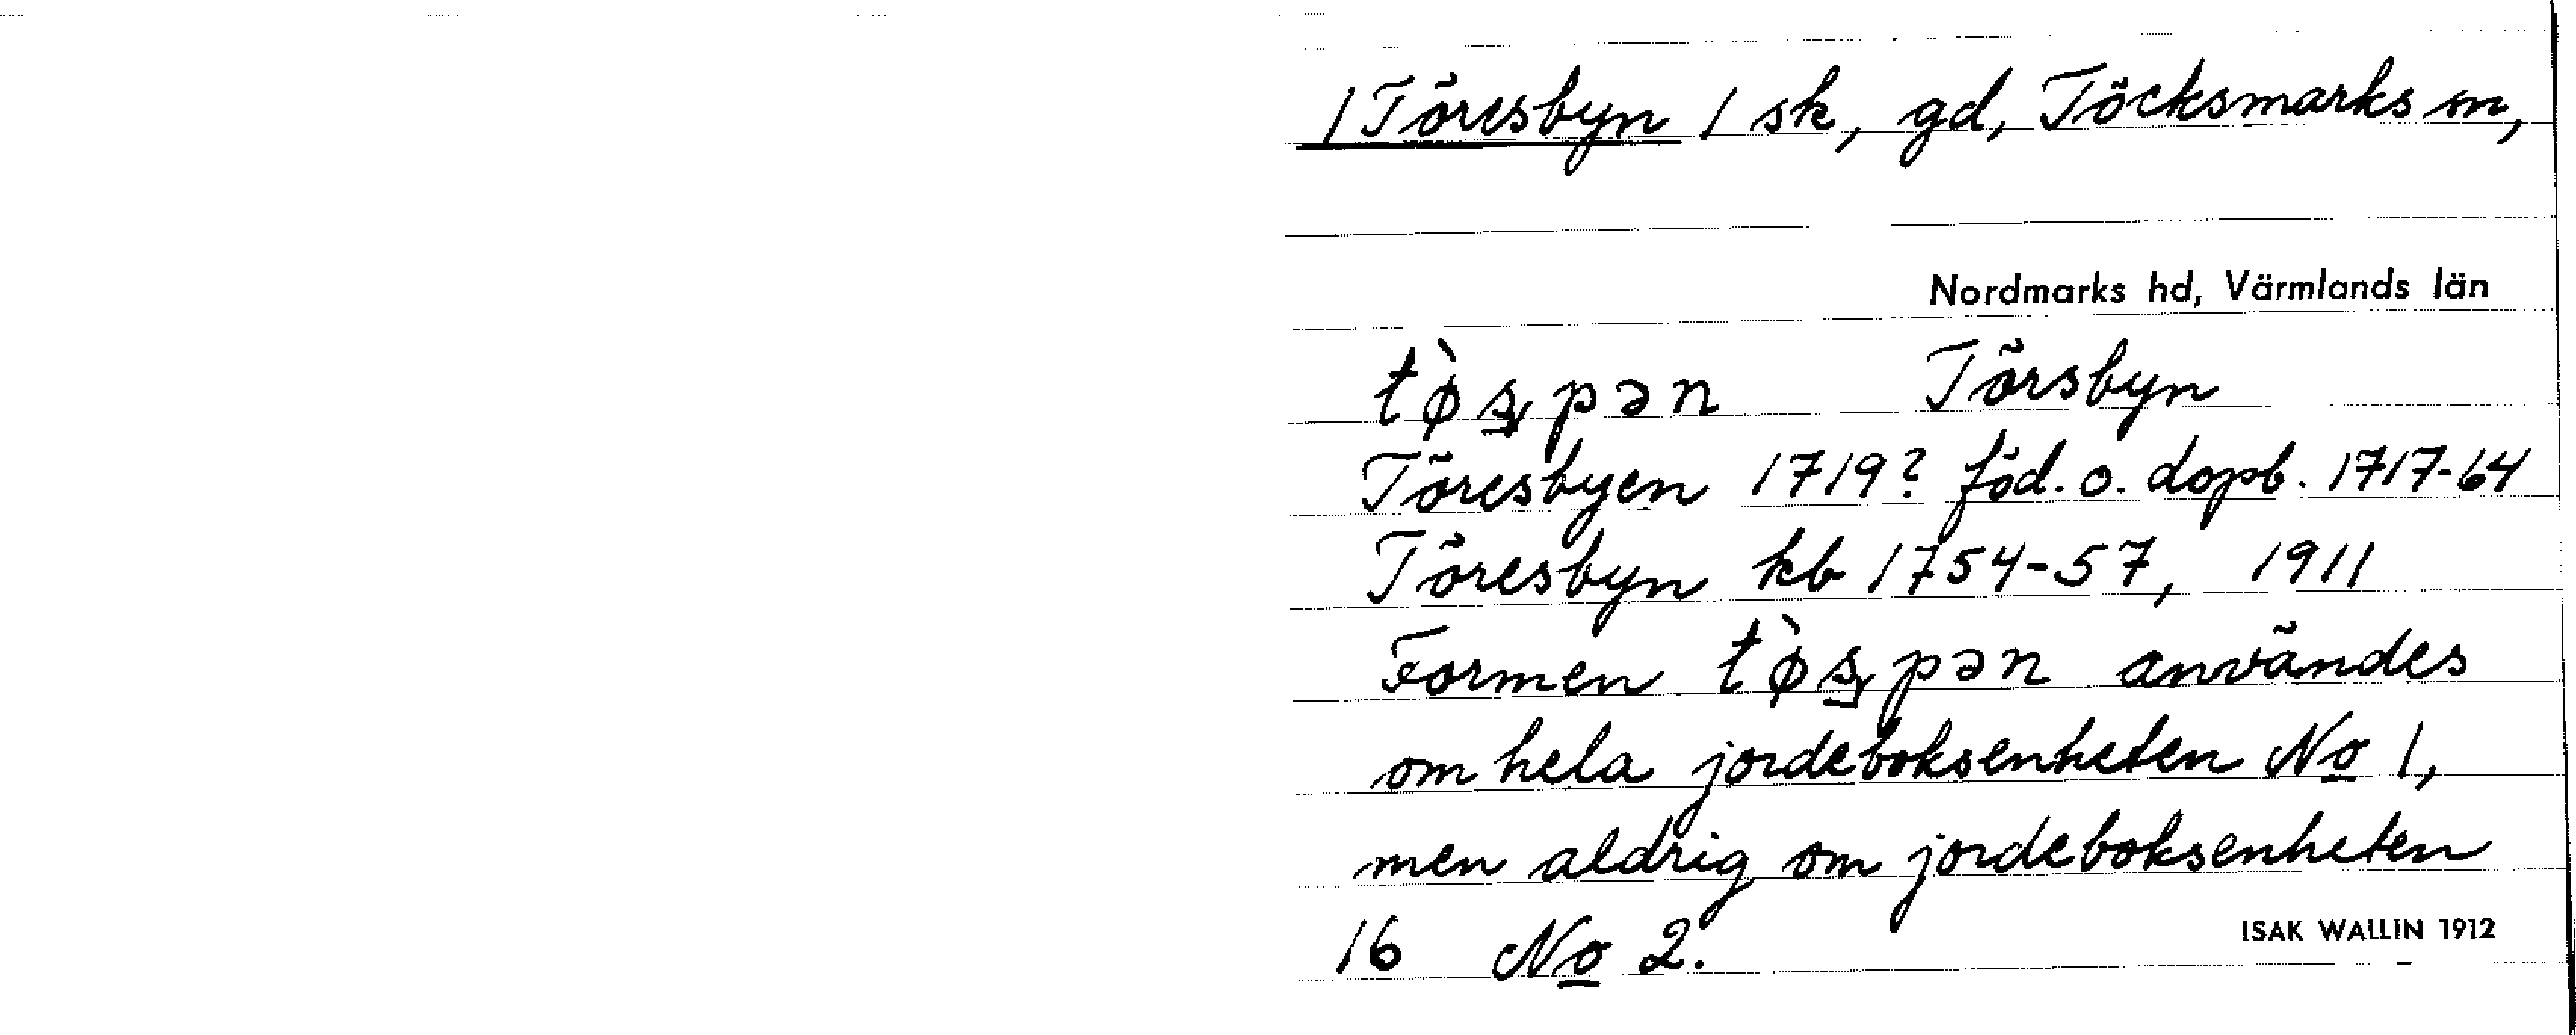 / Töresbyn / sk, gd, Töcksmarks sn,
Nordmarks hd, Värmlands län
tø̀s̱pən Törsbyn
Töresbyen 1719? föd. o. dopb. 1717-64
Töresbyn kb 1754-57, 1911
Formen tø̀s̱pən användes
om hela jordeboksenheten No 1,
men aldrig om jordeboksenheten
16 No 2.
ISAK WALLIN 1912